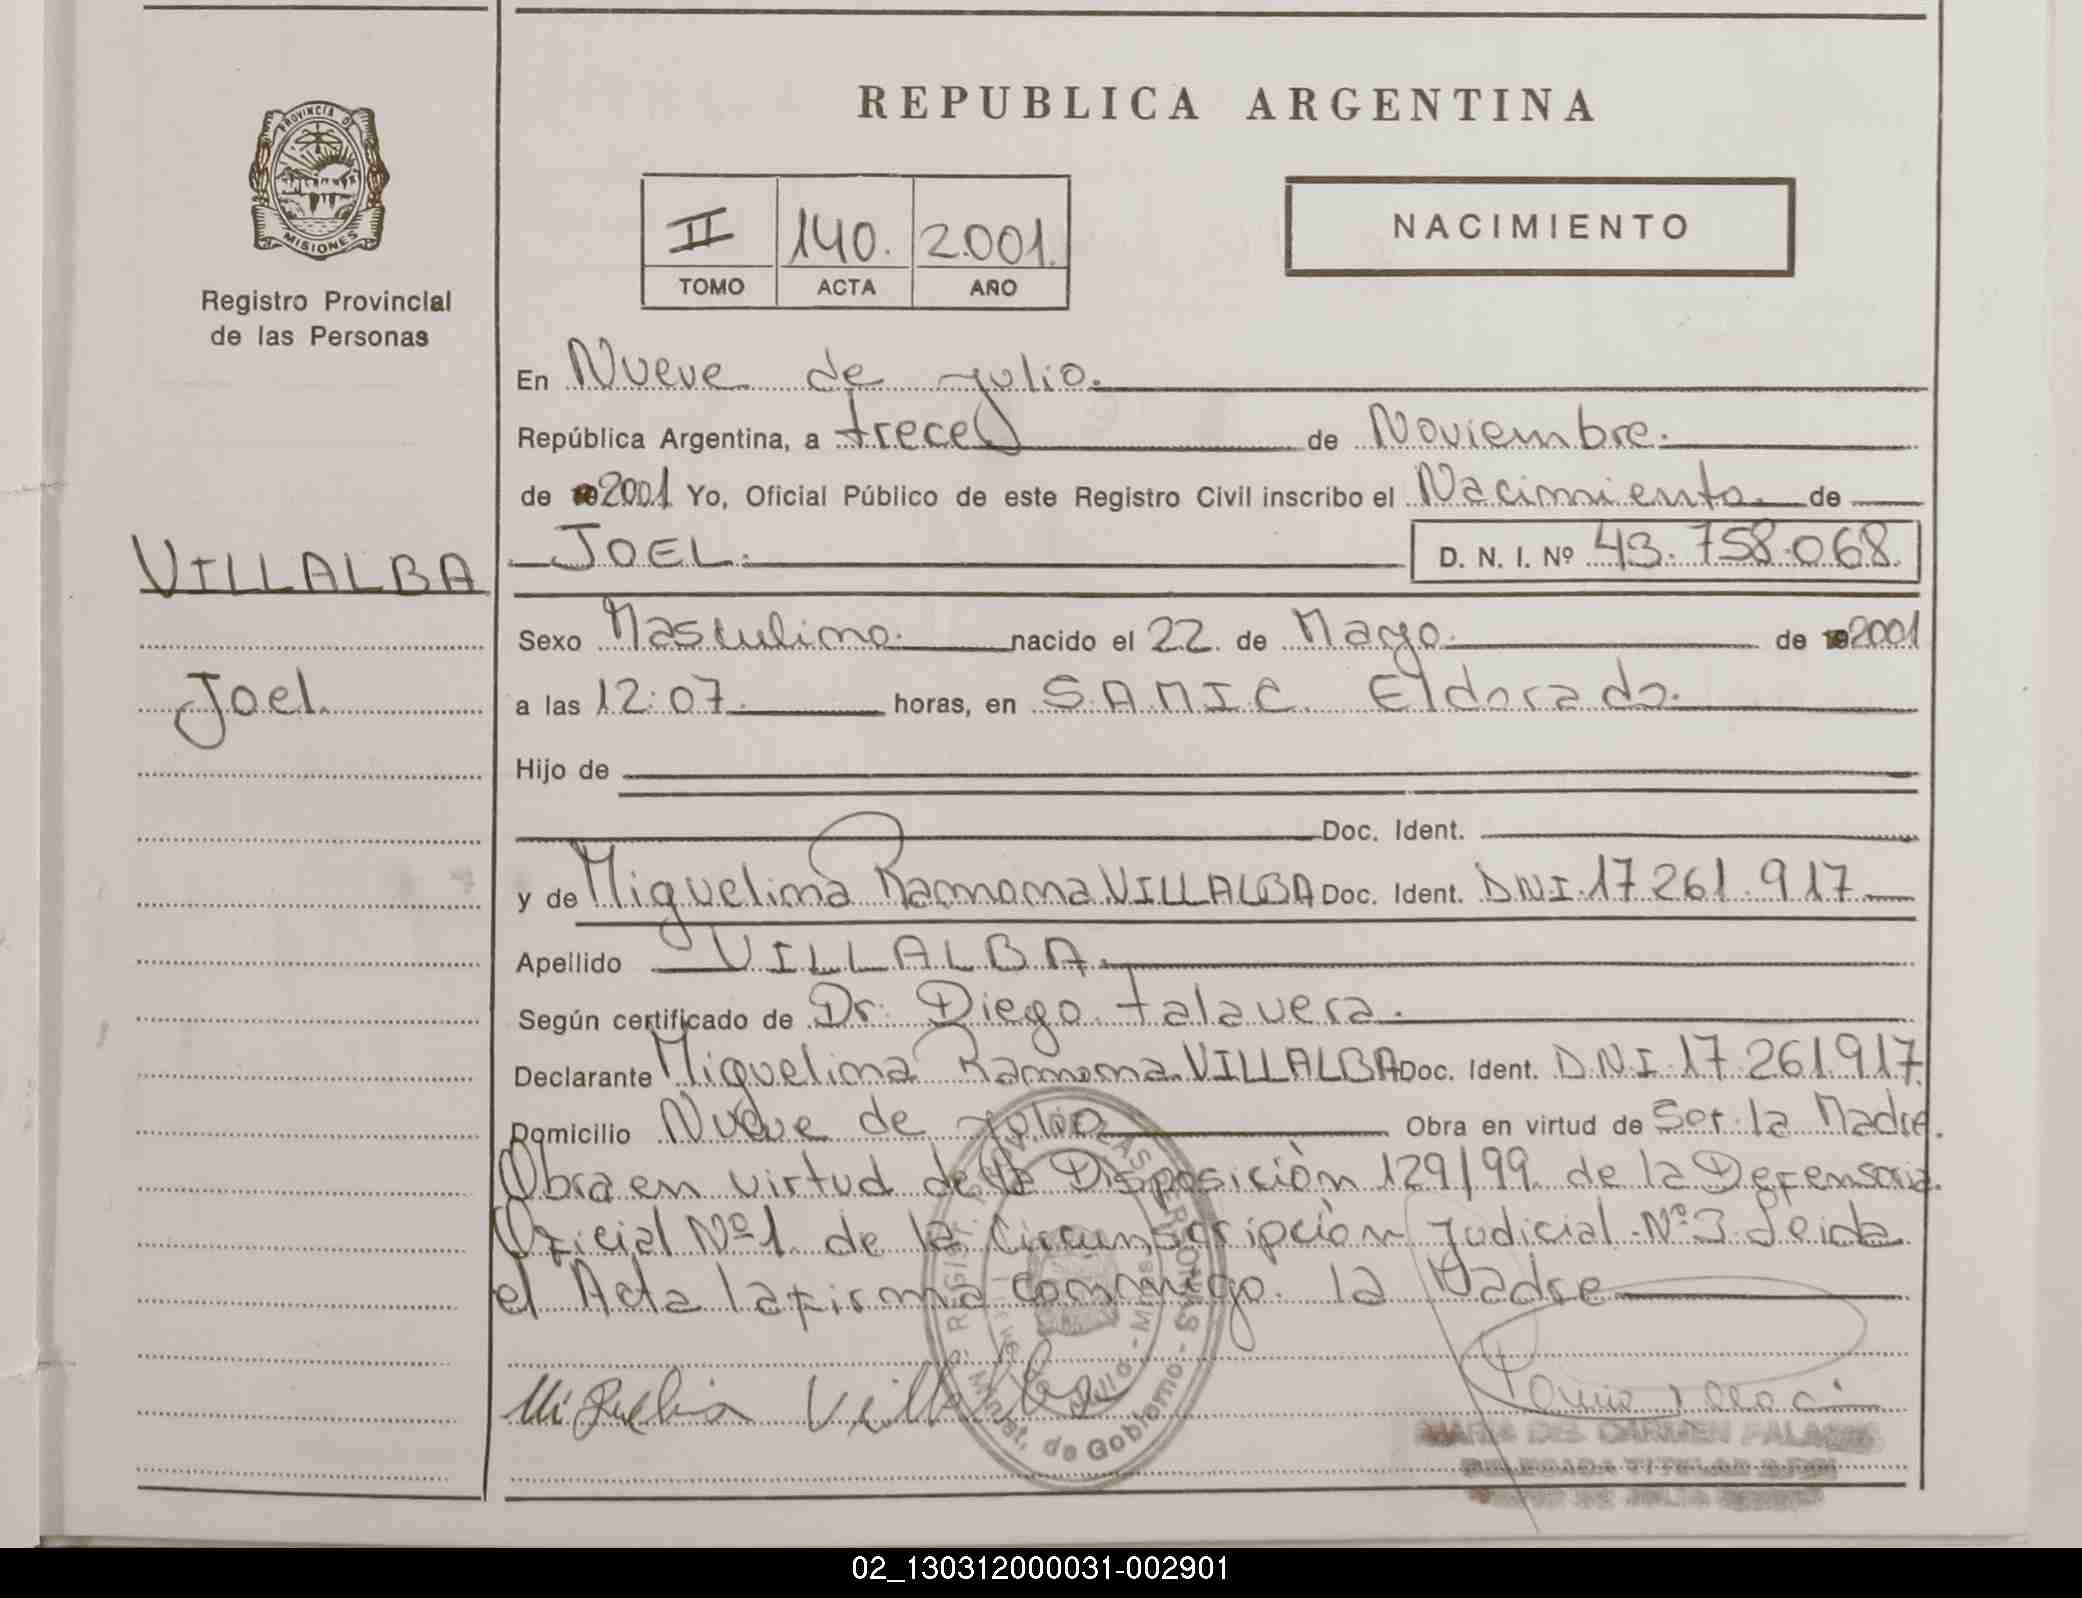 REPUBLICA ARGENTINA
PROVINCIA DE
MISIONES
Registro Provincial
de las Personas
II 140. 2.001.
TOMO ACTA AÑO
NACIMIENTO
En Nueve de julio.
República Argentina, a trece de Noviembre.
de 2001 Yo, Oficial Público de este Registro Civil inscribo el Nacimiento de
VILLALBA
Joel
JOEL. D. N. I. Nº 43.758.068.
Sexo Masculino. nacido el 22 de Mayo. de 2001
a las 12:07. horas, en S.A.M.I.C. Eldorado.
Hijo de
Doc. Ident.
y de Miguelina Ramona VILLALBA Doc. Ident. D.N.I.17.261.917
Apellido VILLALBA.
Según certificado de Dr. Diego Talavera.
Declarante Miguelina Ramona VILLALBA Doc. Ident. D.N.I.17.261.917.
Domicilio Nueve de julio Obra en virtud de Ser la Madre.
Obra en virtud de la Disposición 129/99 de la Defensoria
Oficial Nº1 de la Circunscripción judicial Nº3 Leida
el Acta la firma conmigo la Madre
Miguelina Villalba
Minist. de Gobierno
MARIA DEL CARMEN PALACIO
02_130312000031-002901